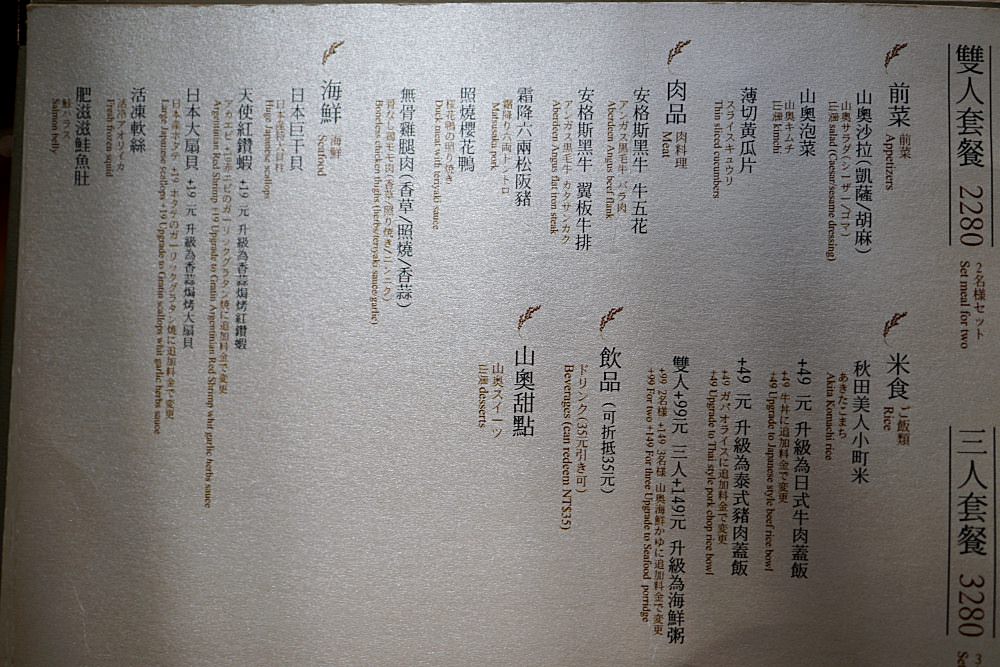 雙人套餐 2280
2名様セット
Set meal for two
三人套餐 3280
3
Se
前菜 前菜
Appetizers
山奧沙拉(凱薩/胡麻)
山奥サラダ(シーザー/ゴマ)
山奧 salad (Caesar/sesame dressing)
山奧泡菜
山奥キムチ
山奧 kimchi
薄切黃瓜片
スライスキュウリ
Thin sliced cucumbers
肉品 肉料理
Meat
安格斯黑牛 牛五花
アンガス黒毛牛 バラ肉
Aberdeen Angus beef flank
安格斯黑牛 翼板牛排
アンガス黒毛牛 カタサンカク
Aberdeen Angus flat iron steak
霜降六兩松阪豬
霜降り六両トントロ
Matsusaka pork
照燒櫻花鴨
桜花鴨の照り焼き
Duck meat with teriyaki sauce
無骨雞腿肉(香草/照燒/香蒜)
骨なし鶏モモ肉(香草/照り焼き/ニンニク)
Boneless chicken thighs (herbs/teriyaki sauce/garlic)
海鮮 海鮮
Seafood
日本巨干貝
Huge Japanese scallops
天使紅鑽蝦 +19 元 升級為香蒜焗烤紅鑽蝦
Argentinian Red Shrimp +19 Upgrade to Gratin Argentinian Red Shrimp whit garlic herbs sauce
日本大扇貝 +19 元 升級為香蒜焗烤大扇貝
日本産ホタテ +19 ホタテのガーリックグラタン焼に追加料金で変更
Large Japanese scallops +19 Upgrade to Gratin scallops whit garlic herbs sauce
活凍軟絲
活冷アオリイカ
Fresh frozen squid
肥滋滋鮭魚肚
鮭ハラス
Salmon belly
米食 ご飯類
Rice
秋田美人小町米
あきたこまち
Akita Komachi rice
+49 元 升級為日式牛肉蓋飯
+49 牛丼に追加料金で変更
+49 Upgrade to Japanese style beef rice bowl
+49 元 升級為泰式豬肉蓋飯
+49 ガパオライスに追加料金で変更
+49 Upgrade to Thai style pork chop rice bowl
雙人+99元 三人+149元 升級為海鮮粥
+99 2名様 +149 3名様 山奥海鮮かゆに追加料金で変更
+99 For two +149 For three Upgrade to Seafood porridge
飲品 (可折抵35元)
ドリンク(35元引き可)
Beverages (can redeem NT$35)
山奧甜點
山奥スイーツ
山奧 desserts